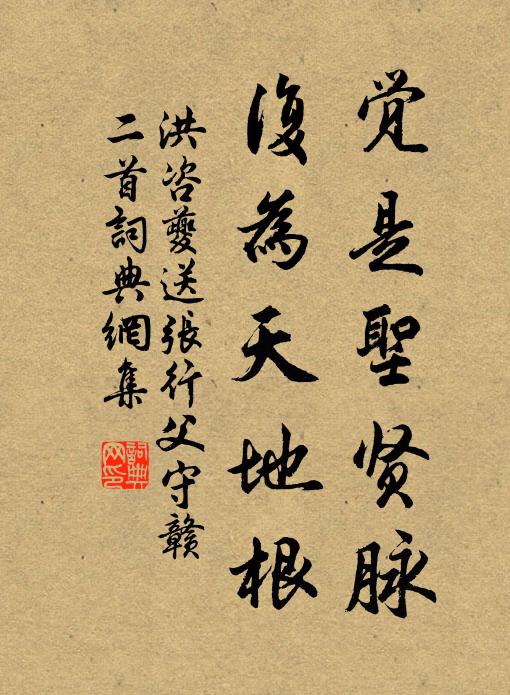 觉是聖贤脉
復為天地根
洪咨夔送張行父守贛
二首詞典網集
詞典
网印